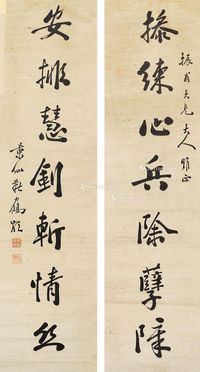 操練心兵除孽障
振甫大兄大人雅正
安排慧劍斬情絲